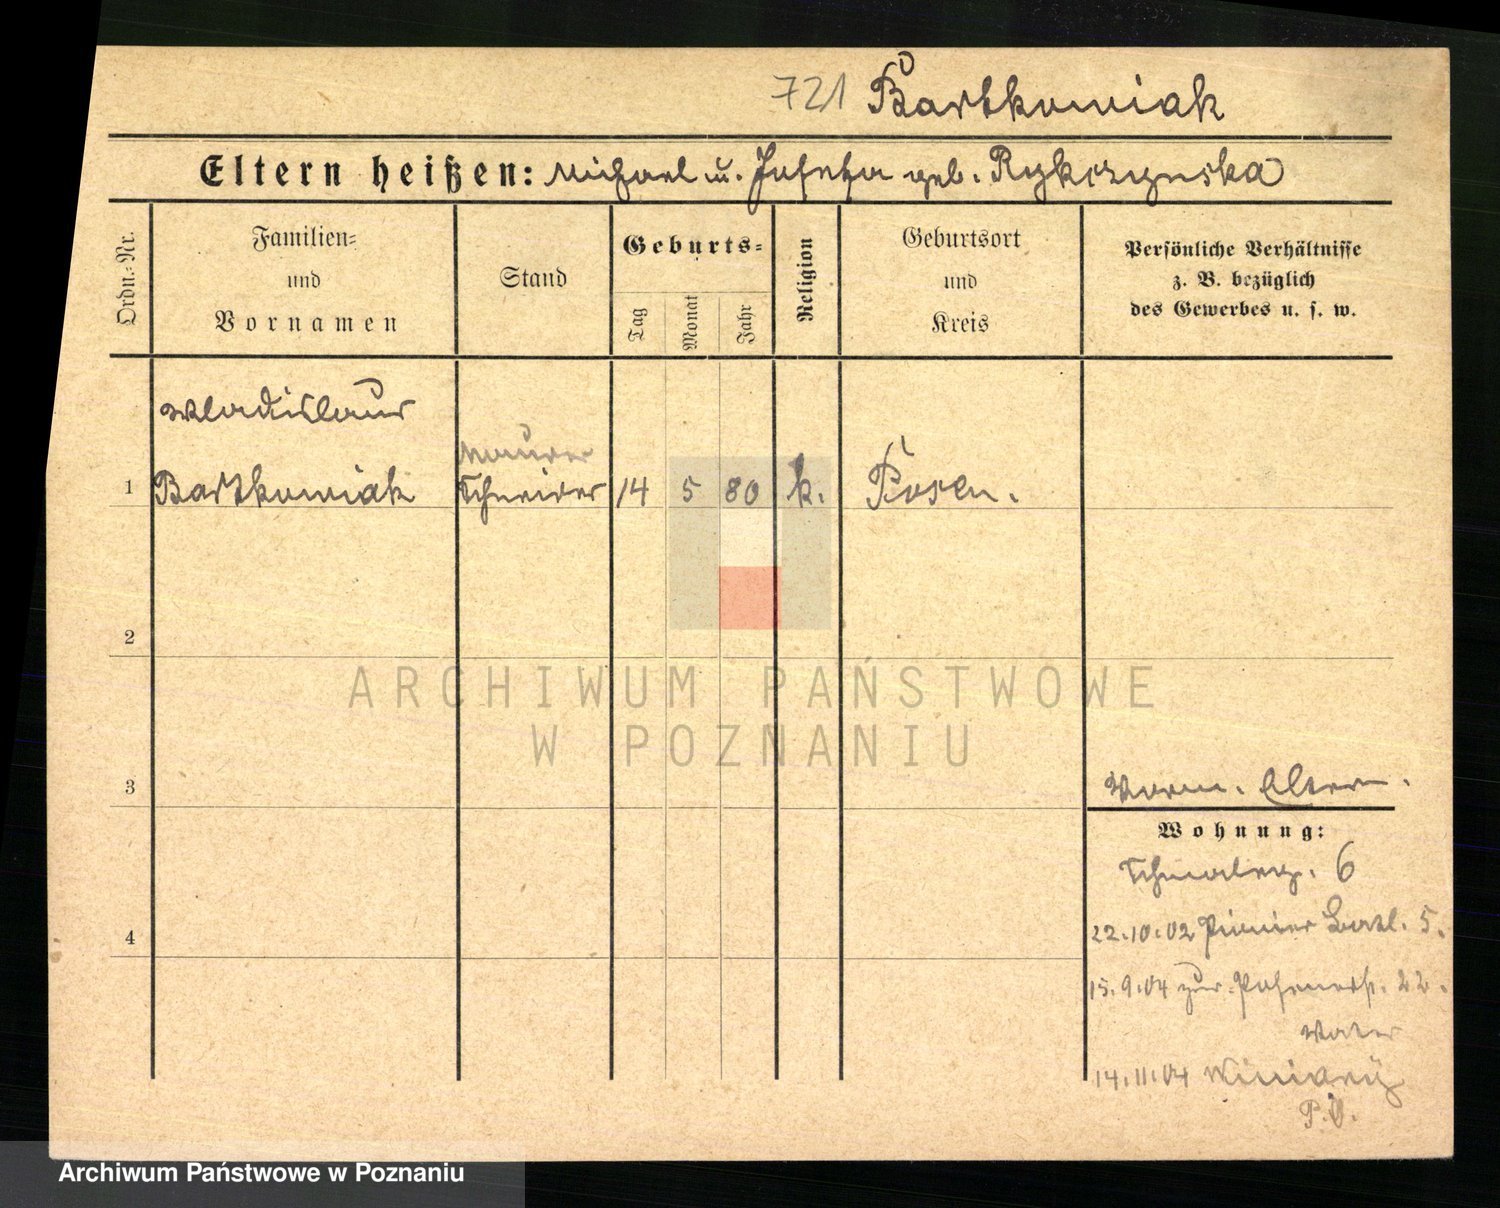 721 Bartkowiak
Eltern heißen: Michael u. Josefa geb. Rykczynska
Ordn.-Nr.
Familien-
und
Vornamen
Stand
Geburts-
Tag
Monat
Jahr
Religion
Geburtsort
und
Kreis
Persönliche Verhältnisse
z. B. bezüglich
des Gewerbes u. s. w.
Wladislaus
Maurer
1 Bartkowiak Schneider 14 5 80 k. Posen.
2
ARCHIWUM PAŃSTWOWE
W POZNANIU
3
Eltern.
Wohnung:
6
4
22.10.02 Pionier Batl. 5.
15.9.04 zur. 22.
Vater
14.11.04 Winiary
P.V.
Archiwum Państwowe w Poznaniu